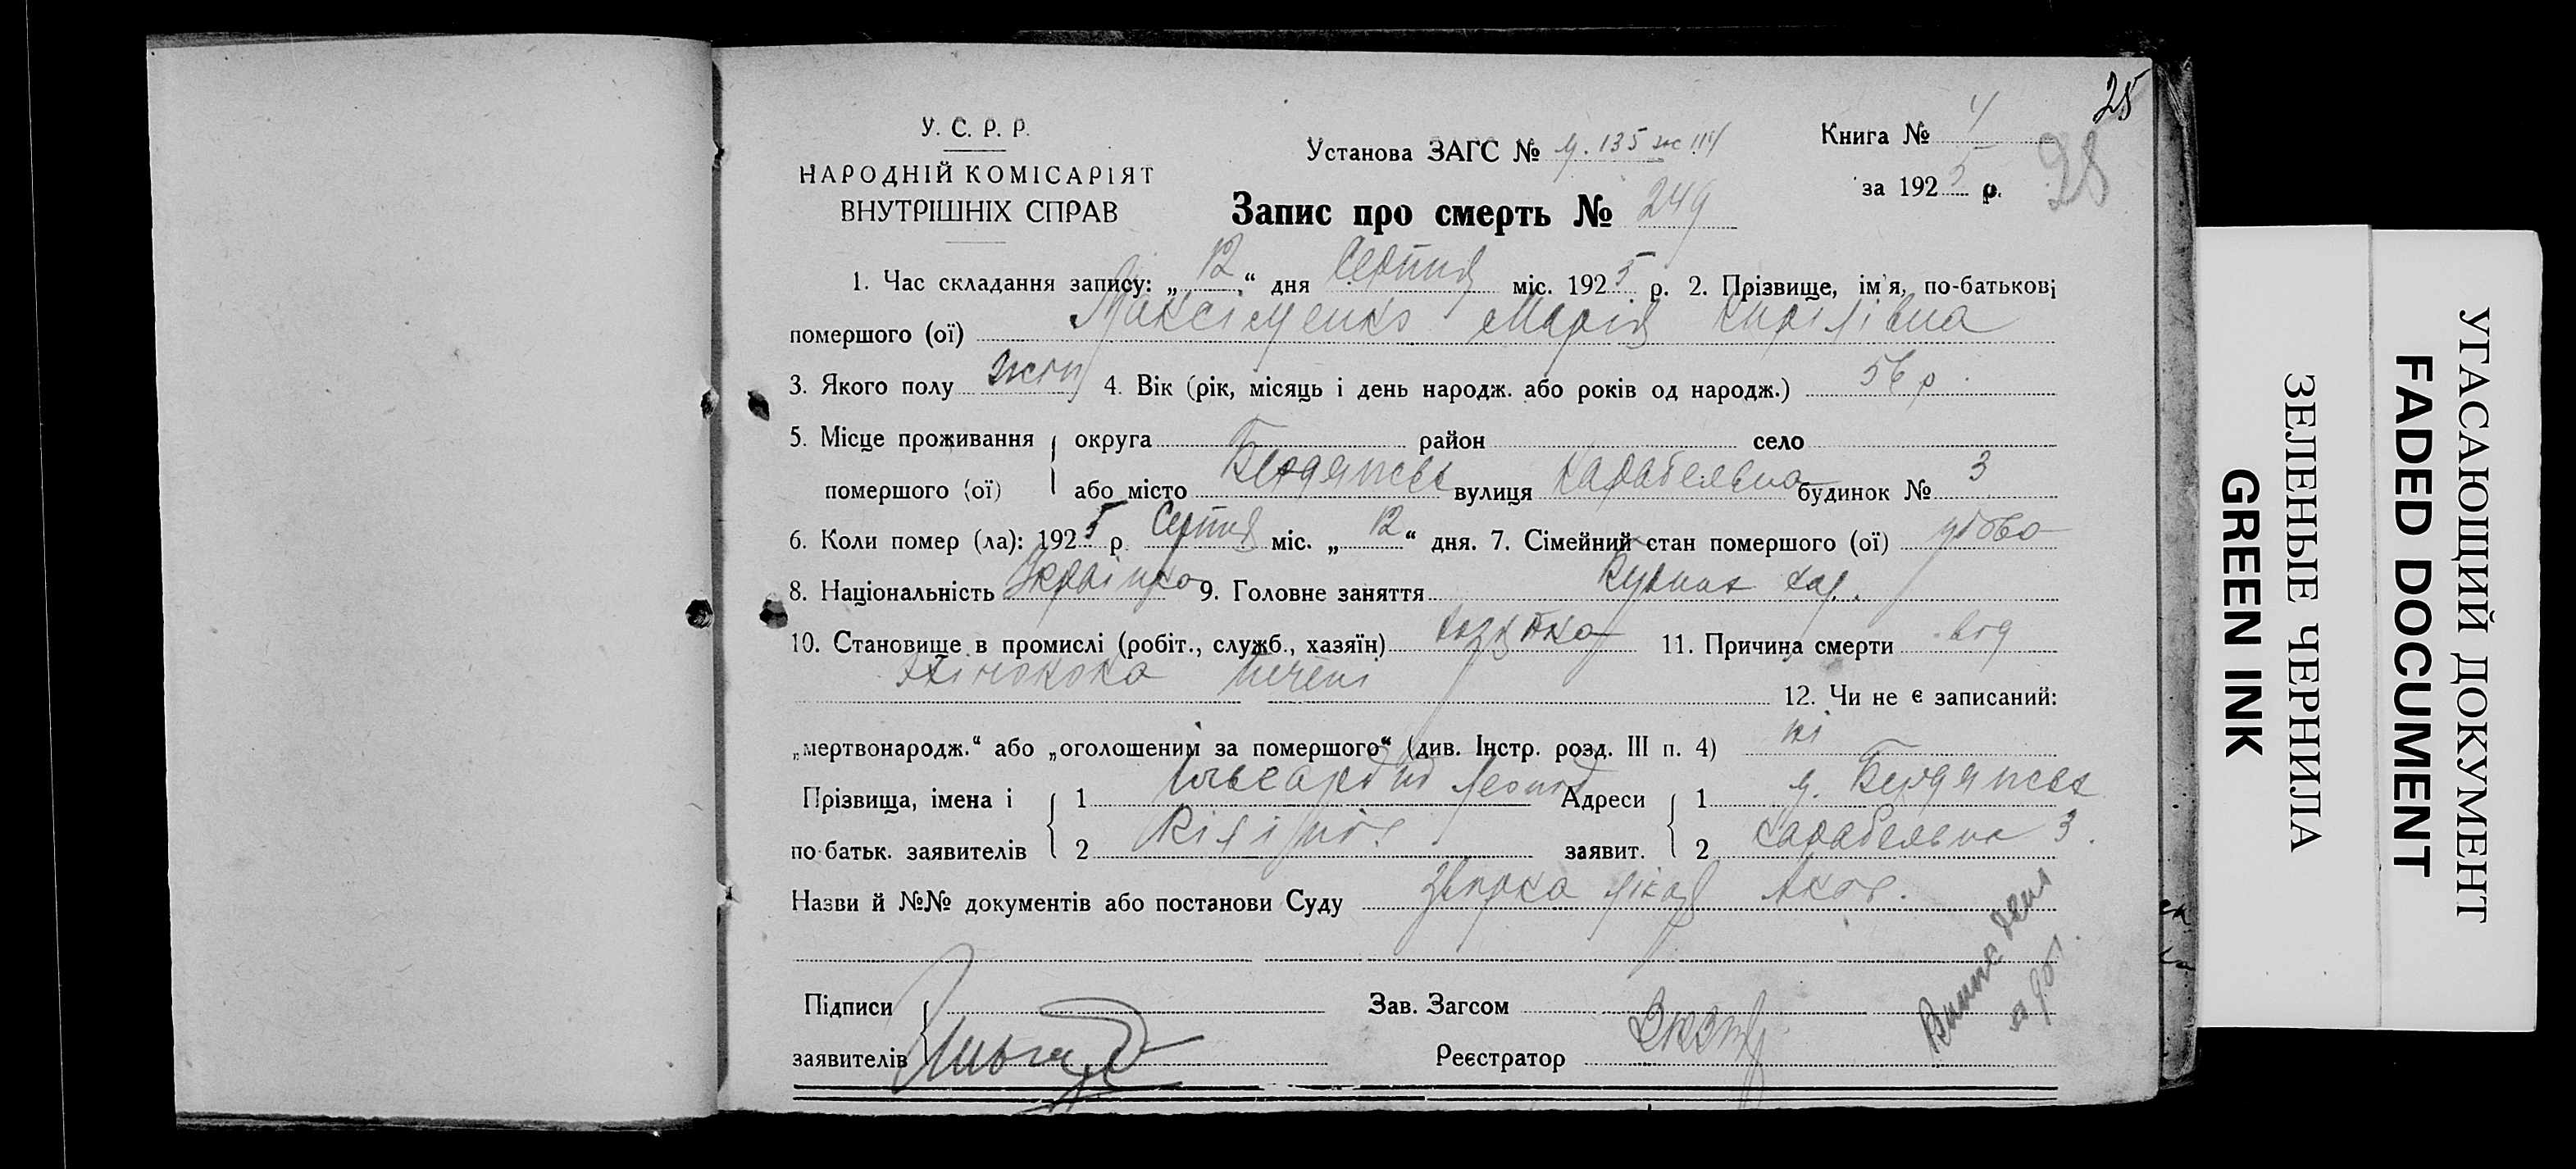 25
28
У. С. Р. Р.
НАРОДНІЙ КОМІСАРІЯТ
ВНУТРІШНІХ СПРАВ
Установа ЗАГС № 135
Книга № 4
за 1925 р.
Запис про смерть № 249
1. Час складання запису: „12“ дня Серпня міс. 1925 р. 2. Прізвище, ім'я, по-батькові
помершого (ої) Максіменко Марія Кирілівна
3. Якого полу жін 4. Вік (рік, місяць і день народж. або років од народж.) 56 р.
5. Місце проживання округа район село
помершого (ої) або місто Бердянськ вулиця Карабельна будинок № 3
6. Коли помер (ла): 1925 р. Серпня міс. „12“ дня. 7. Сімейний стан помершого (ої) удова
8. Національність Українка 9. Головне заняття
10. Становище в промислі (робіт., служб., хазяїн) 11. Причина смерти від
Ехінокока печені
12. Чи не є записаний:
„мертвонародж.“ або „оголошеним за помершого“ (див. Інстр. розд. III п. 4) ні
Прізвища, імена і 1 Адреси 1 м. Бердянськ
по-батьк. заявителів 2 заявит. 2 Карабельна 3.
Назви й №№ документів або постанови Суду
Підписи
заявителів
Зав. Загсом
Реєстратор
УГАСАЮЩИЙ ДОКУМЕНТ
FADED DOCUMENT
ЗЕЛЕНЫЕ ЧЕРНИЛА
GREEN INK